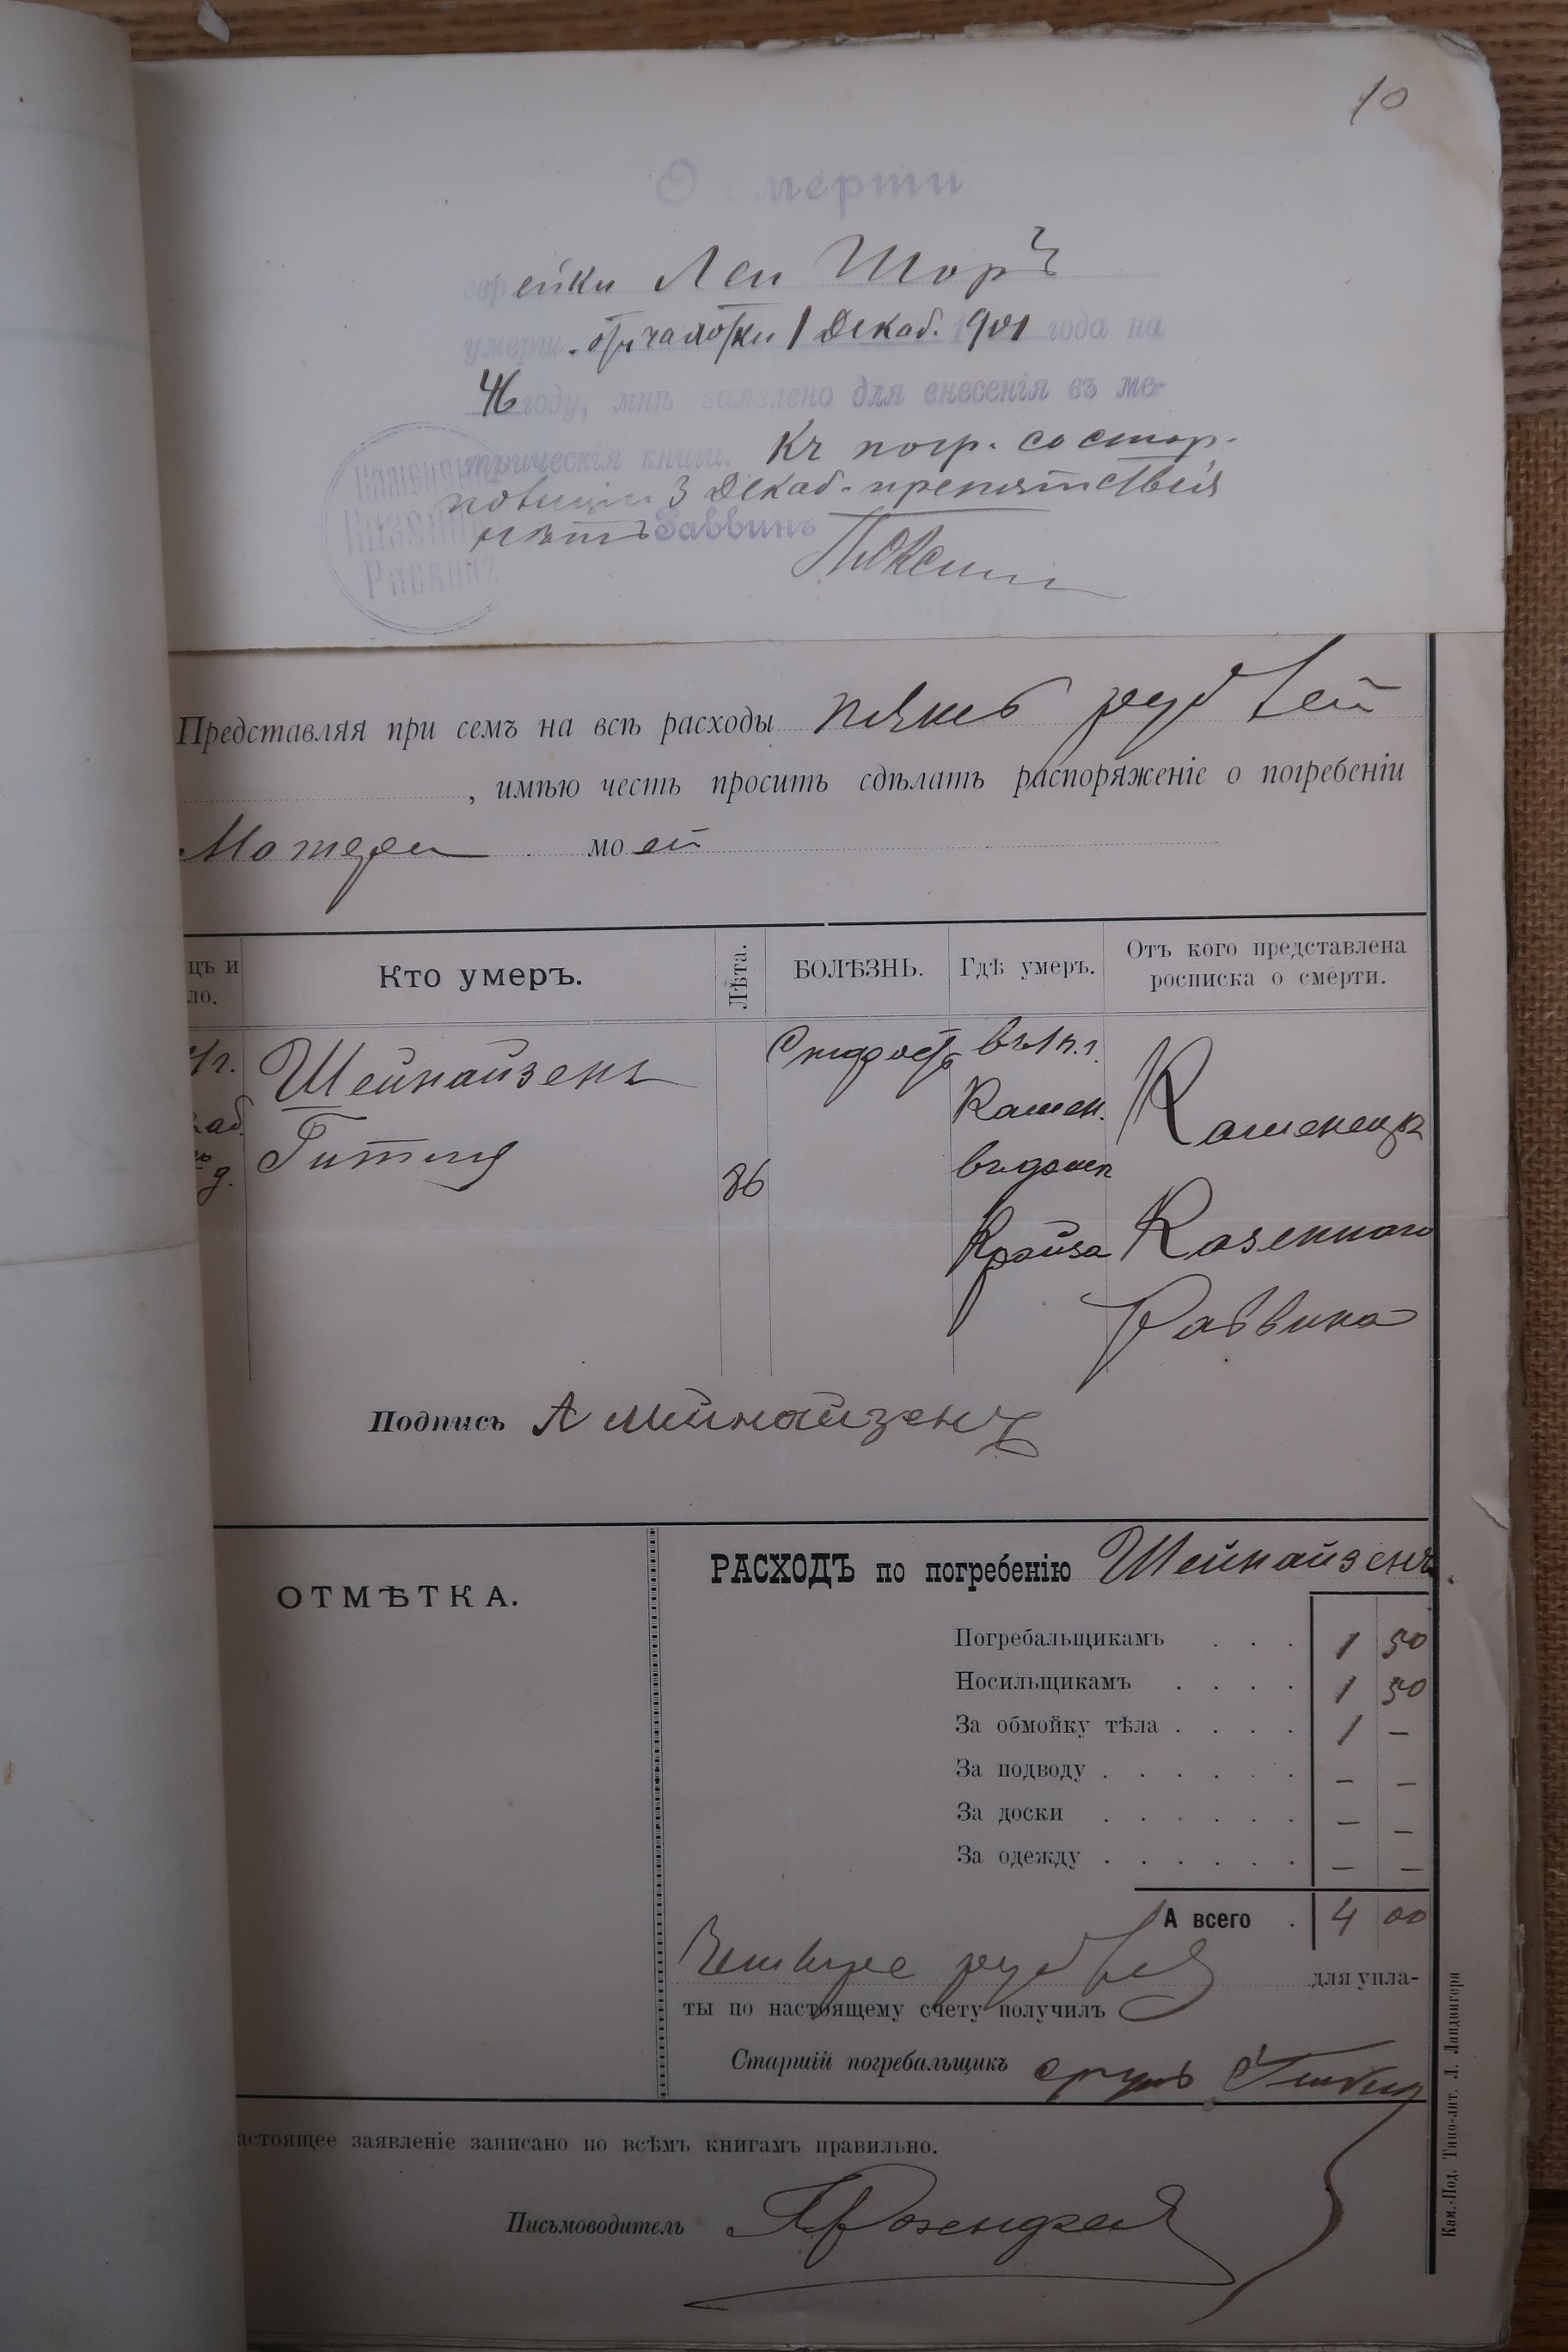 10
О смерти
еврейки Леи Шоръ
умерш. отъ чахотки 1 Декаб. 1901 года на
46 году, мнѣ заявлено для внесенія въ ме-
трическія книги. Къ погр. со стор.
полиціи 3 Декаб. препятствія
нѣтъ Раввинъ
Каменец
Казенный
Раввинъ
Представляя при семъ на всѣ расходы пять рублей
, имѣю честь просить сдѣлать распоряженіе о погребеніи
Матери моей
цъ и
ло.
Кто умеръ.
Лѣта.
БОЛѢЗНЬ.
Гдѣ умеръ.
Отъ кого представлена
росписка о смерти.
1г. Шейнайзенъ Старость
Камен. Каменецк
каб. Гитля
д. 86 въ домѣ
Крайза Казеннаго
Раввина
Подпись А Шейнайзенъ
ОТМѢТКА.
РАСХОДЪ по погребенію Шейнайзенъ
Погребальщикамъ . . . 1 50
Носильщикамъ . . . . 1 50
За обмойку тѣла . . . . 1 —
За подводу . . . . . . — —
За доски . . . . . . — —
За одежду . . . . . . — —
А всего . 4 00
Четыре рубля для упла-
ты по настоящему счету получилъ
Старшій погребальщикъ
астоящее заявленіе записано по всѣмъ книгамъ правильно.
Письмоводитель
Кам.-Под. Типо-лит. Л. Ландвигера